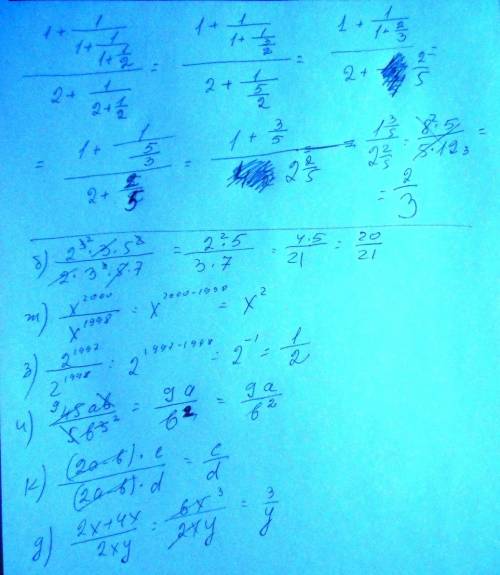 (1 + 1/(1 + 1/(1 + 1/2))) / (2 + 1/(2 + 1/2)) = (1 + 1/(1 + 1/(3/2))) / (2 + 1/(5/2)) = (1 + 1/(1 + 2/3)) / (2 + 2/5) =
= (1 + 1/(5/3)) / (2 + 2/5) = (1 + 3/5) / (2 2/5) = (1 3/5) / (2 2/5) = (8² · 5) / (5 · 12₃) = = 2/3
б) (2³² · 3 · 5²) / (2 · 3² · 5 · 7) = (2² · 5) / (3 · 7) = (4 · 5) / 21 = 20/21
ж) x²⁰⁰⁰ / x¹⁹⁹⁸ = x²⁰⁰⁰⁻¹⁹⁹⁸ = x²
з) 2¹⁹⁹⁷ / 2¹⁹⁹⁸ = 2¹⁹⁹⁷⁻¹⁹⁹⁸ = 2⁻¹ = 1/2
и) ⁹45ab / = 9a / b² = 9a / b²
к) (2a-b) · c / (2a-b) · d = c / d
д) (2x+4x) / 2xy = 6x³ / 2xy = 3 / y